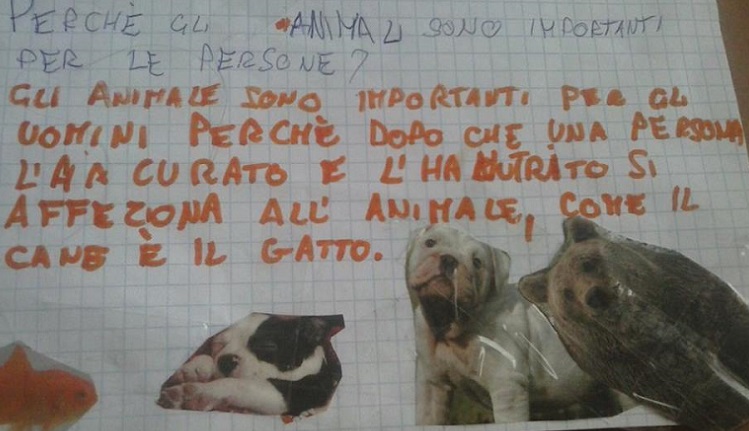 PERCHÈ GLI ANIMALI SONO IMPORTANTI
PER LE PERSONE?
GLI ANIMALE SONO IMPORTANTI PER GLI
UOMINI PERCHÈ DOPO CHE UNA PERSONA
L'HA CURATO E L'HA NUTRITO SI
AFFEZONA ALL' ANIMALE, COME IL
CANE È IL GATTO.